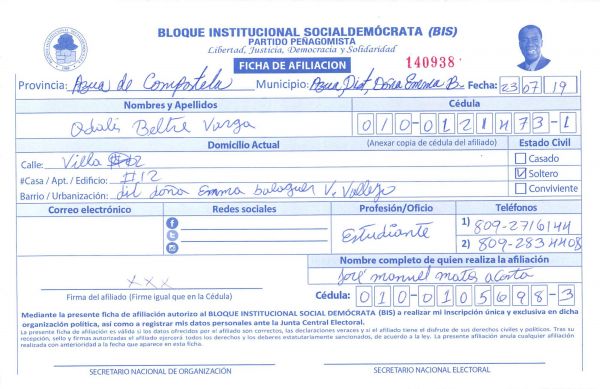 BLOQUE INSTITUCIONAL SOCIALDEMÓCRATA (BIS)
PARTIDO PEÑAGOMISTA
Libertad, Justicia, Democracia y Solidaridad
FICHA DE AFILIACION 140938
Provincia: Azua de Compostela Municipio: Azua, Dist, Doña Emma B. Fecha: 23 07 19
Nombres y Apellidos Cédula
Odalis Beltre Vargas 010-0121473-1
Domicilio Actual (Anexar copia de cédula del afiliado) Estado Civil
Calle: Villa Casado
#Casa / Apt. / Edificio: #12 Soltero
Barrio / Urbanización: dil doña Emma balaguer V. Vallejo Conviviente
Correo electrónico Redes sociales Profesión/Oficio Teléfonos
Estudiante 1) 809-2716144
2) 809-283 4408
Nombre completo de quien realiza la afiliación
José manuel matos acosta
xxx
Firma del afiliado (Firme igual que en la Cédula) Cédula: 010-0105698-3
Mediante la presente ficha de afiliación autorizo al BLOQUE INSTITUCIONAL SOCIAL DEMÓCRATA (BIS) a realizar mi inscripción única y exclusiva en dicha
organización política, así como a registrar mis datos personales ante la Junta Central Electoral.
La presente ficha de afiliación es válida si los datos ofrecidos por el afiliado son correctos, las declaraciones veraces y si el afiliado tiene el disfrute de sus derechos civiles y políticos. Tras su
recepción, sello y firmas autorizadas el afiliado ejercerá todos los derechos y los deberes estatutariamente sancionados, de acuerdo a la ley. La presente afiliación anula cualquier afiliación
realizada con anterioridad a la fecha que aparece en esta ficha.
SECRETARIO NACIONAL DE ORGANIZACIÓN SECRETARIO NACIONAL ELECTORAL